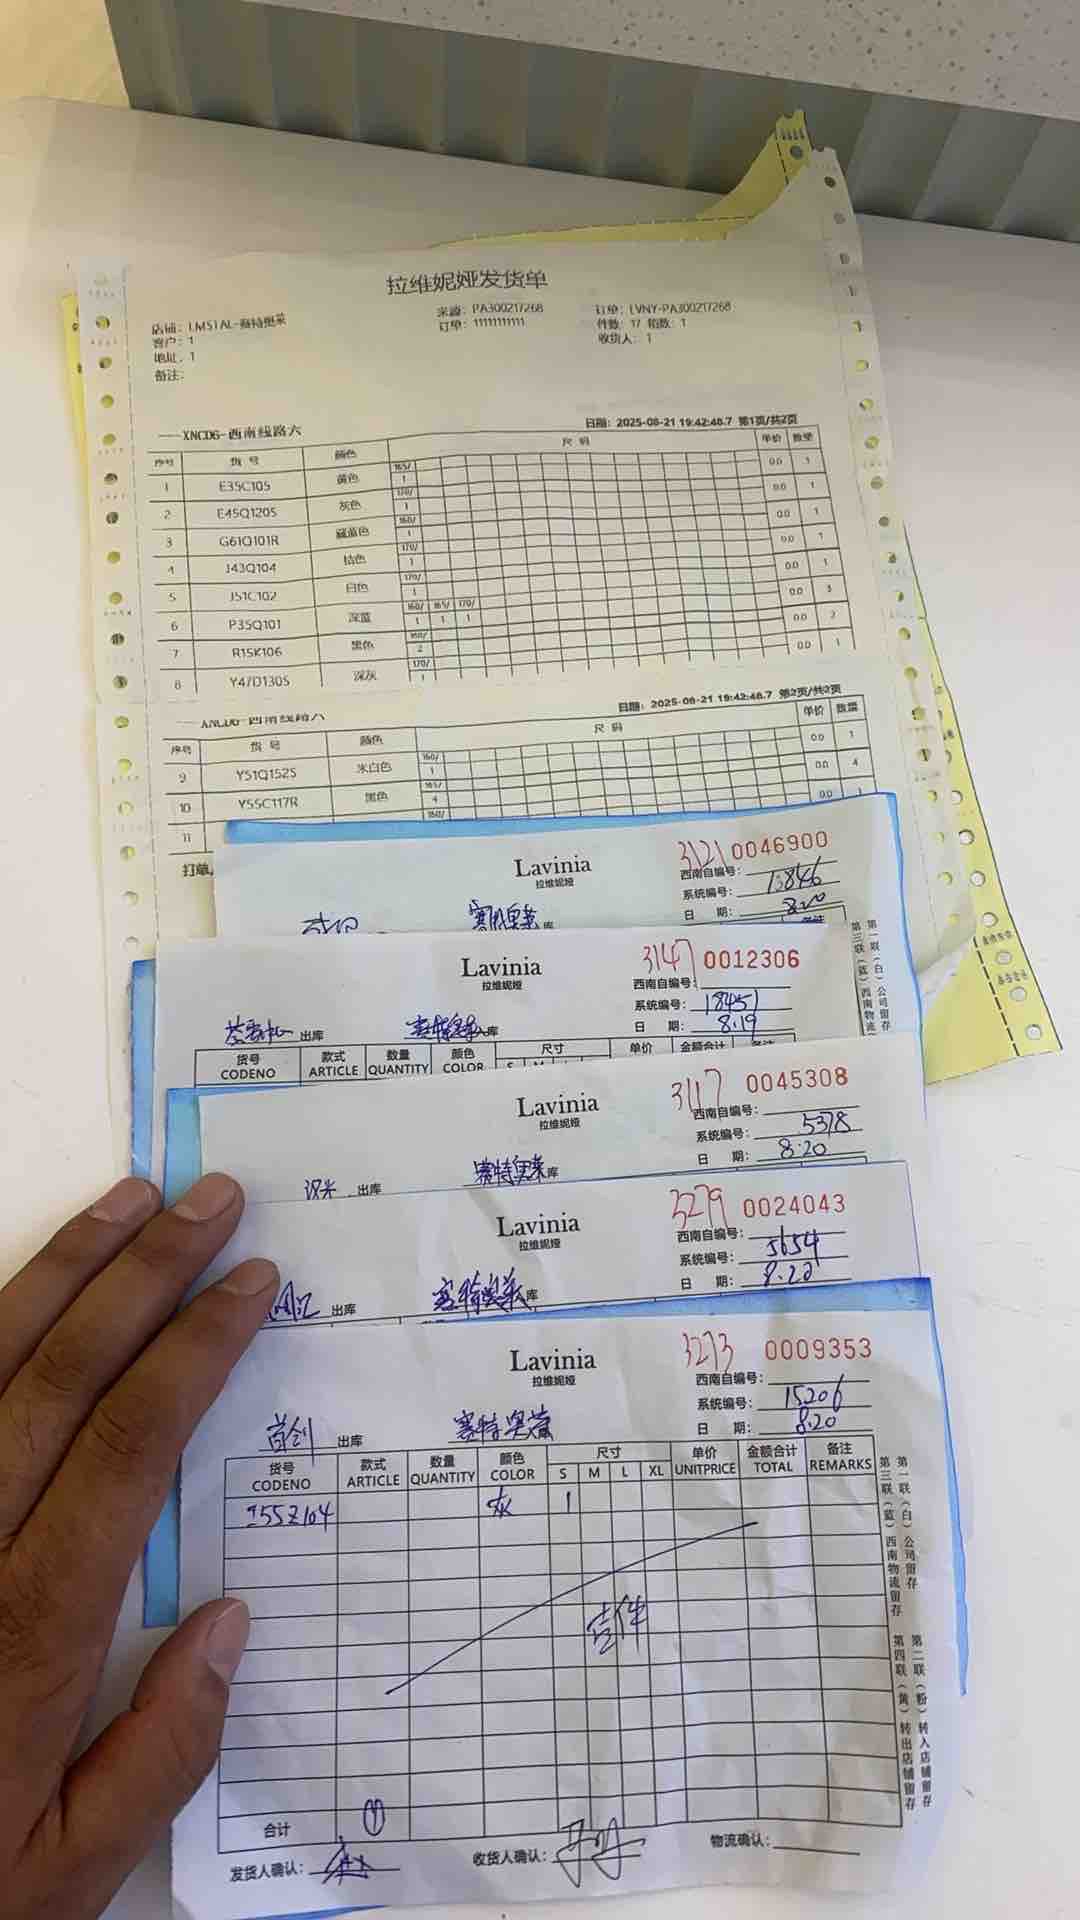 拉维妮娅发货单
店铺：LM51AL-赛特奥莱 来源：PA300217268 订单：LVNY-PA300217268
客户：1 订单：11111111111 件数：17 箱数：1
地址：1 收货人：1
备注：
XNCD6-西南线路六 日期：2025-08-21 19:42:48.7 第1页/共2页
序号 货号 颜色 尺码 单价 数量
165/
1 E35C105 黄色 1 0.0 1
170/
2 E45Q120S 灰色 1 0.0 1
160/
3 G61Q101R 藏蓝色 1 0.0 1
170/
4 J43Q104 桔色 1 0.0 1
170/
5 J51C102 白色 1 0.0 1
160/ 165/ 170/
6 P35Q101 深蓝 1 1 1 0.0 3
160/
7 R15K106 黑色 2 0.0 2
170/
8 Y47D130S 深灰 1 0.0 1
XNCD6-西南线路六 日期：2025-08-21 19:42:48.7 第2页/共2页
序号 货号 颜色 尺码 单价 数量
160/
9 Y51Q152S 米白色 1 0.0 1
165/
10 Y55C117R 黑色 4 0.0 4
160/
11 0.0 1
Lavinia 3121 0046900
拉维妮娅 西南自编号：
系统编号：
日 期：8.20
备注
Lavinia 3147 0012306
拉维妮娅 西南自编号：
系统编号：18451
出库 赛特奥莱入库 日 期：8.19
货号 款式 数量 颜色 尺寸 单价 金额合计 备注
CODENO ARTICLE QUANTITY COLOR S M
Lavinia 3117 0045308
拉维妮娅 西南自编号：
系统编号：5378
出库 赛特奥莱库 日 期：8.20
Lavinia 3279 0024043
拉维妮娅 西南自编号：
系统编号：5654
出库 赛特奥莱库 日 期：8.20
Lavinia 3273 0009353
拉维妮娅 西南自编号：
系统编号：15206
首创 出库 赛特奥莱 日 期：8.20
货号 款式 数量 颜色 尺寸 单价 金额合计 备注
CODENO ARTICLE QUANTITY COLOR S M L XL UNITPRICE TOTAL REMARKS
灰 1
壹件
合计 1
发货人确认： 收货人确认： 物流确认：
第一联（白）公司留存
第二联（粉）转入店铺留存
第三联（蓝）西南物流留存
第四联（黄）转出店铺留存